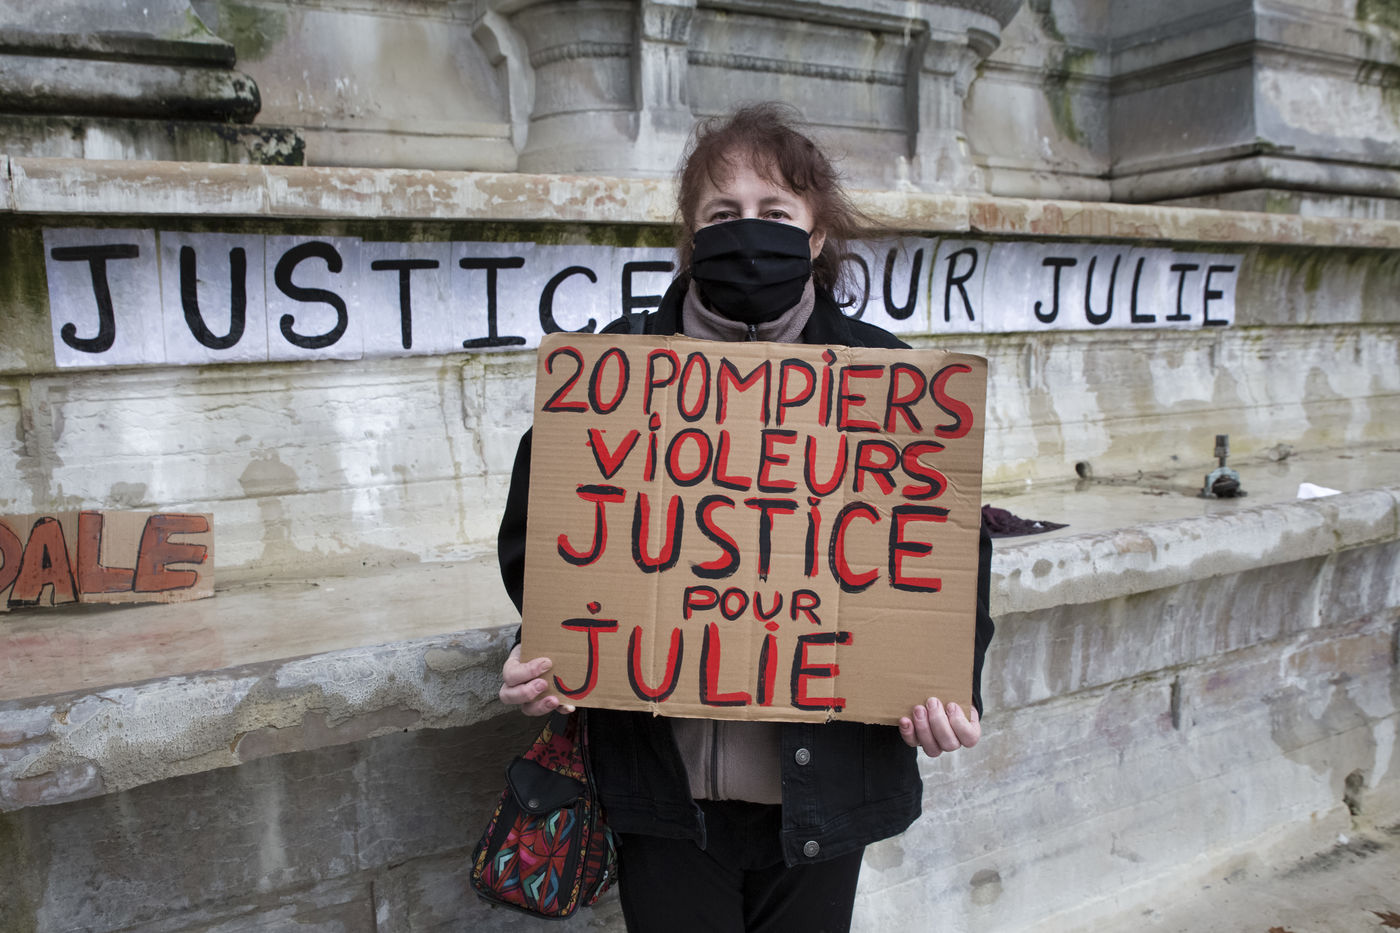 JUSTICE POUR JULIE
20 POMPiERS
ViOLEURS
JUSTiCE
POUR
JULiE
DALE